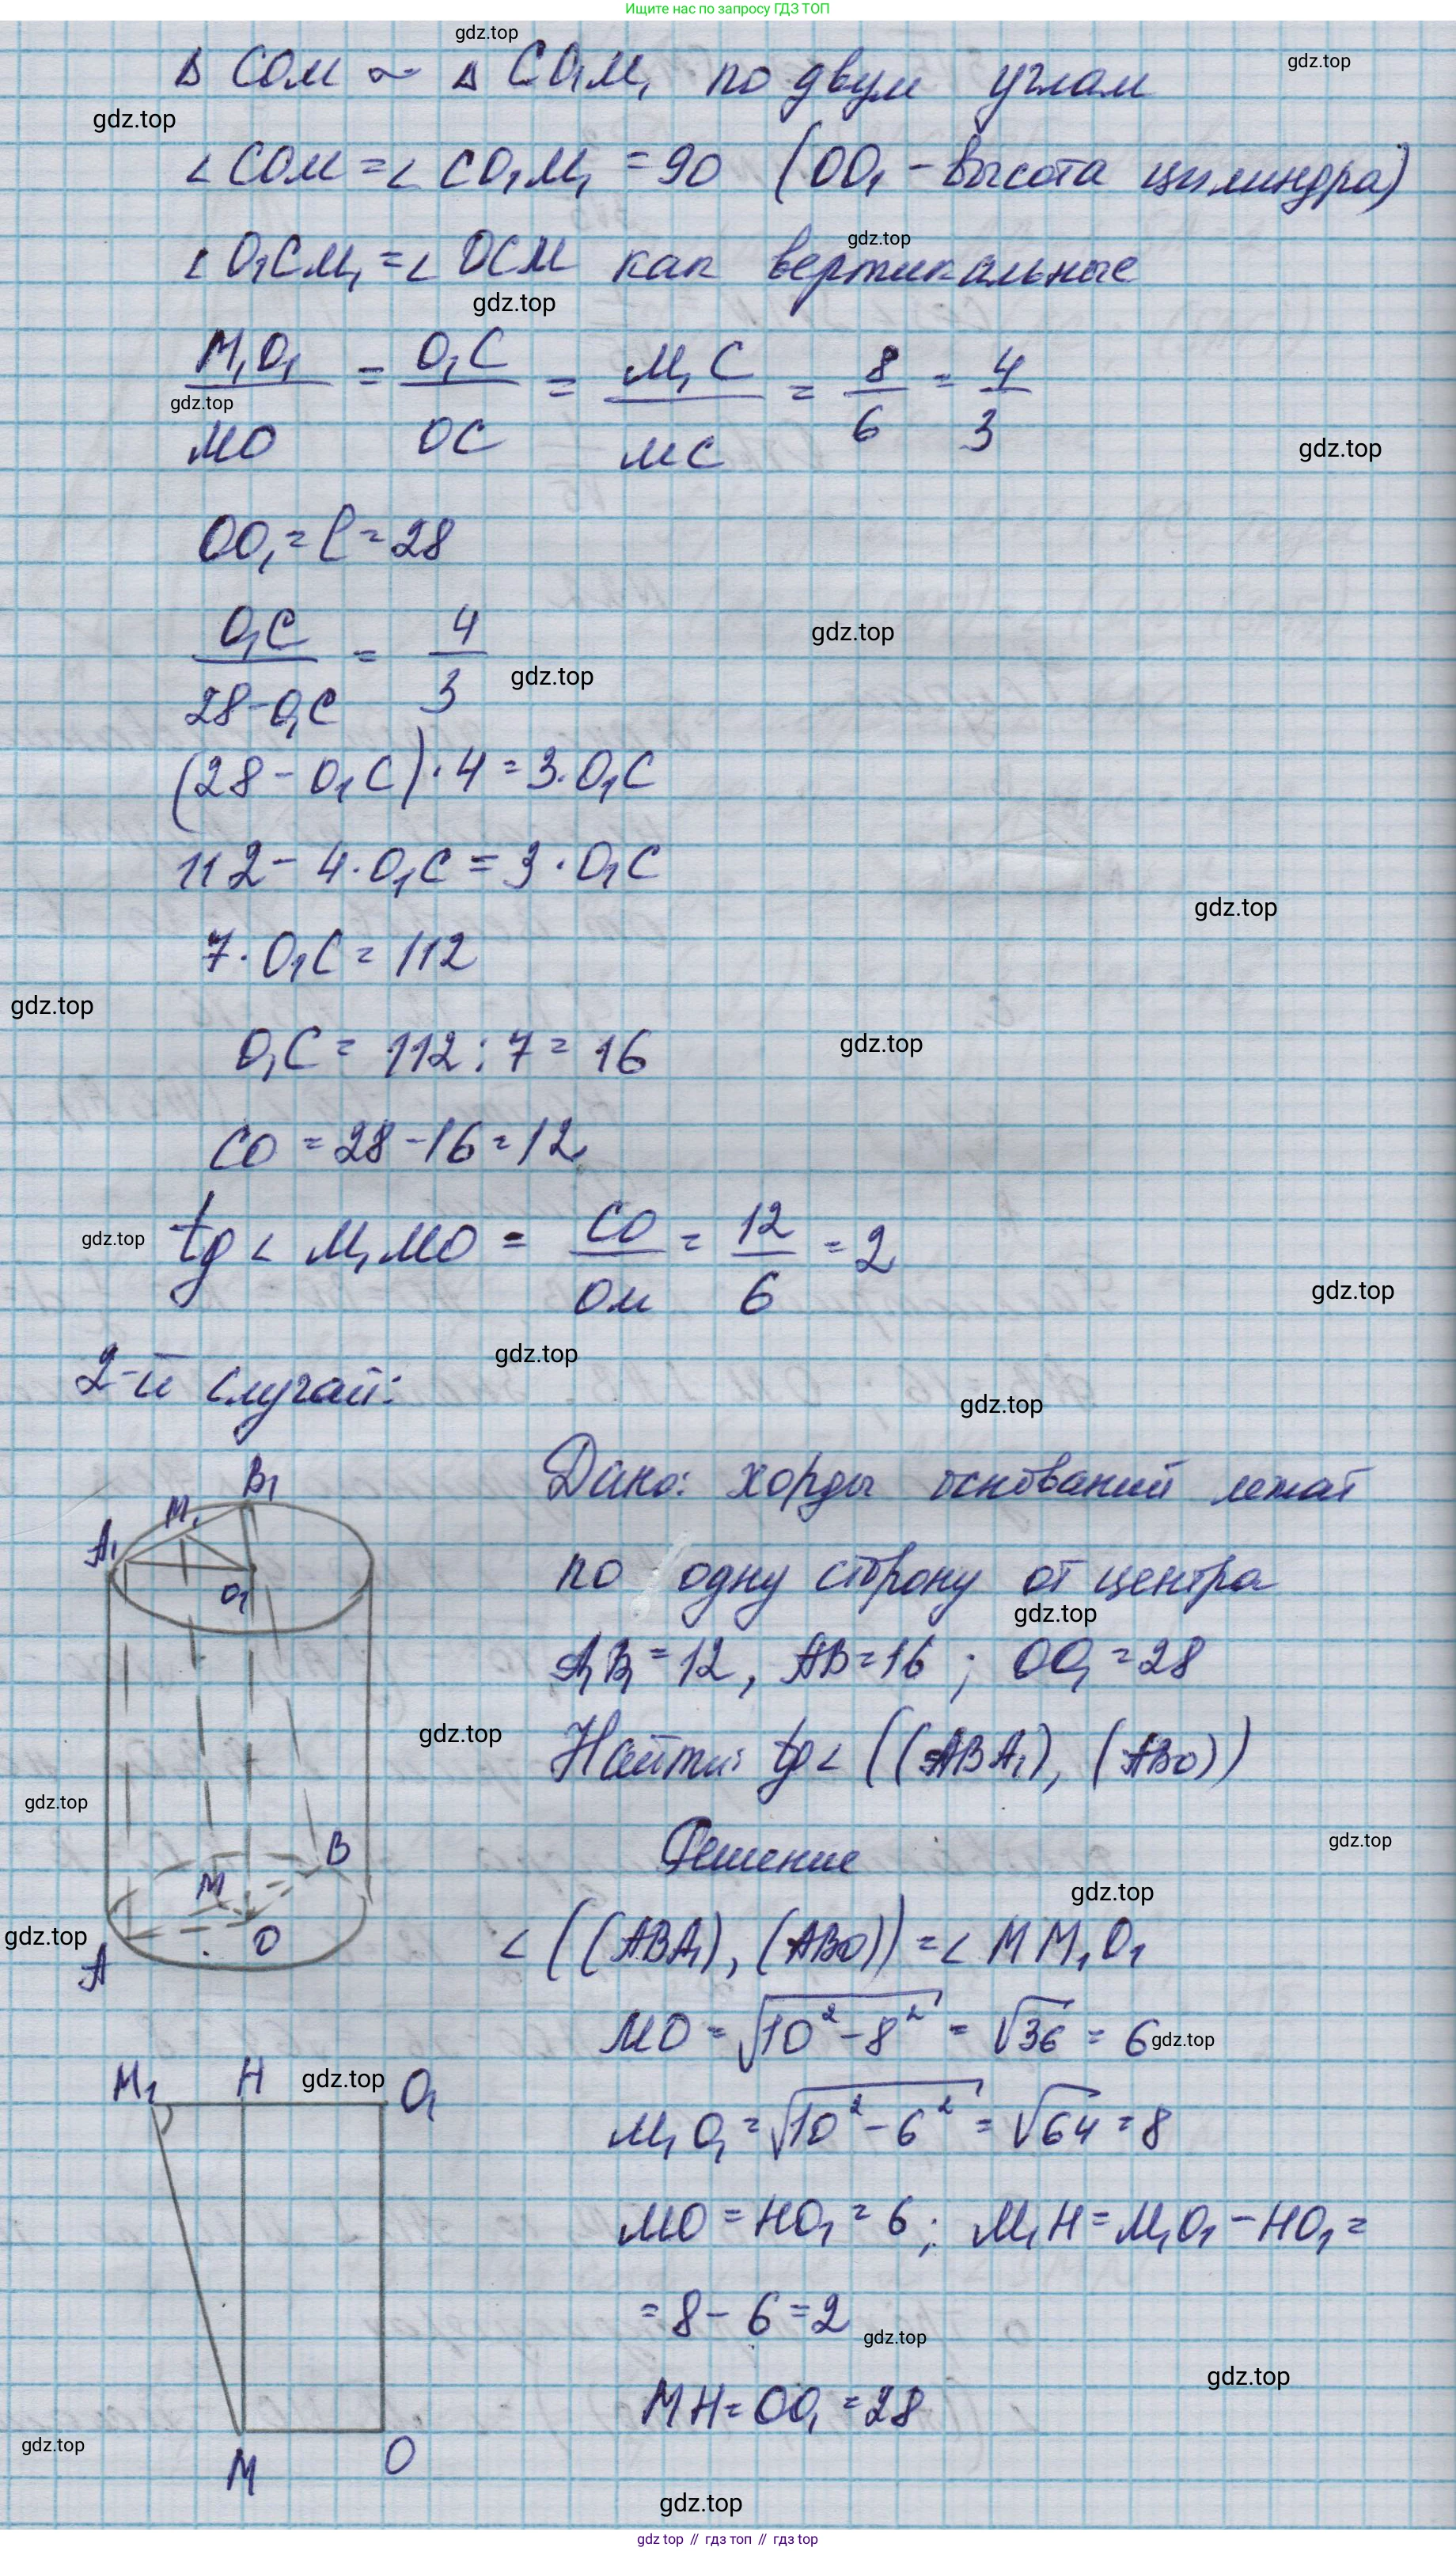 Ищите нас по запросу ГДЗ ТОП
gdz.top
gdz.top
∆ COM ~ ∆ CO₁M₁ по двум углам
gdz.top
∠ COM = ∠ CO₁M₁ = 90 (OO₁ - высота цилиндра)
gdz.top
∠ O₁CM₁ = ∠ OCM как вертикальные
gdz.top
M₁O₁/MO = O₁C/OC = M₁C/MC = 8/6 = 4/3
gdz.top
gdz.top
OO₁ = l = 28
O₁C/28-O₁C = 4/3
gdz.top
gdz.top
(28 - O₁C) · 4 = 3 · O₁C
112 - 4 · O₁C = 3 · O₁C
gdz.top
7 · O₁C = 112
gdz.top
O₁C = 112 : 7 = 16
gdz.top
CO = 28 - 16 = 12
tg ∠ M₁MO = CO/OM = 12/6 = 2
gdz.top
gdz.top
gdz.top
2-й случай:
gdz.top
B₁
M₁
A₁
O₁
Дано: хорды оснований лежат
по одну сторону от центра
gdz.top
A₁B₁ = 12, AB = 16 ; OO₁ = 28
gdz.top
Найти: tg ∠ ((ABA₁), (ABO))
gdz.top
B
M
O
A
Решение
gdz.top
gdz.top
gdz.top
∠ ((ABA₁), (ABO)) = ∠ MM₁O₁
MO = √10² - 8² = √36 = 6
gdz.top
M₁ H O₁
gdz.top
M₁O₁ = √10² - 6² = √64 = 8
MO = HO₁ = 6 ; M₁H = M₁O₁ - HO₁ =
= 8 - 6 = 2
gdz.top
gdz.top
MH = OO₁ = 28
gdz.top
M O
gdz.top
gdz top // гдз топ // гдз top